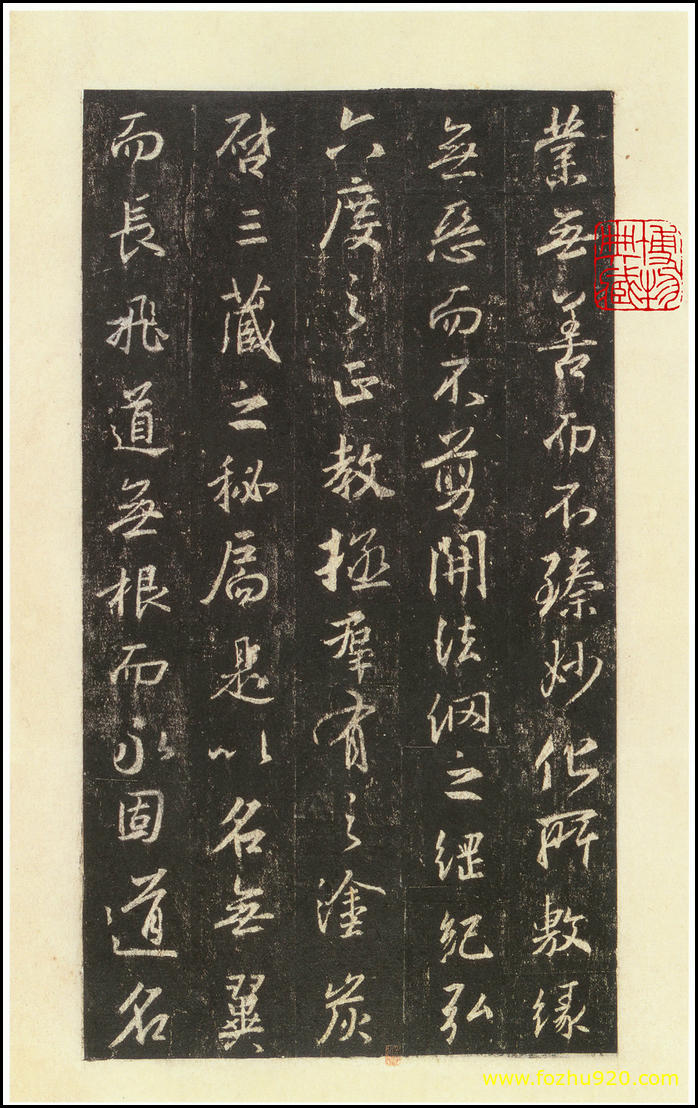 業無善而不臻妙化所敷緣
無惡而不剪開法網之綱紀弘
六度之正教拯群有之塗炭
啓三藏之秘扃是以名無翼
而長飛道無根而永固道名
www.fozhu920.com